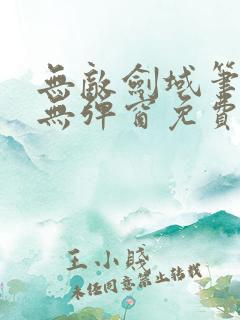 無敵劍域筆
無彈窗免費
王小賤
未經同意禁止轉載